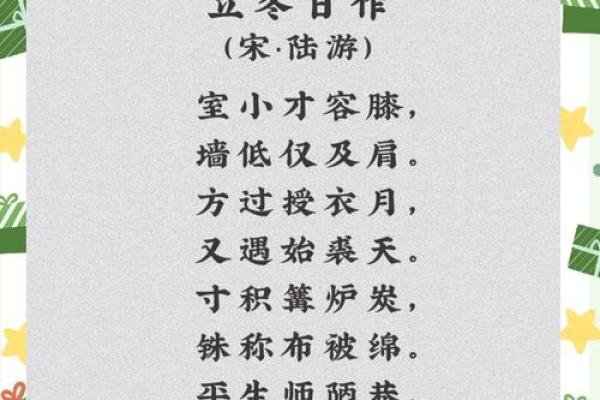 立冬日作
(宋·陆游)
室小才容膝，
墙低仅及肩。
方过授衣月，
又遇始裘天。
寸积篝炉炭，
铢称布被绵。
平生师陋巷，